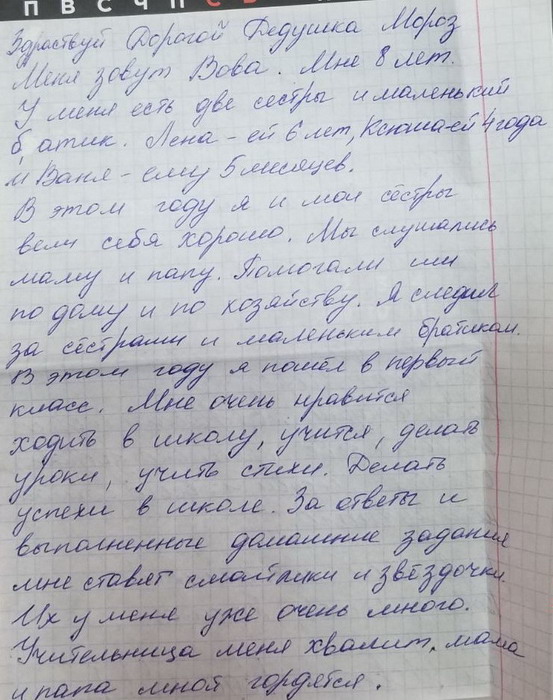 П В С Ч П С В
Здраствуй Дорогой Дедушка Мороз
Меня зовут Вова. Мне 8 лет.
У меня есть две сестры и маленький
братик. Лена - ей 6 лет, Ксюша-ей 4 года
и Ваня - ему 5 месяцев.
В этом году я и мои сёстры
вели себя хорошо. Мы слушались
маму и папу. Помогали им
по дому и по хозяйству. Я следил
за сёстрами и маленьким братиком.
В этом году я пошёл в первый
класс. Мне очень нравится
ходить в школу, учится, делать
уроки, учить стихи. Делать
успехи в школе. За ответы и
выполненные домашние задания
мне ставят смайлики и звёздочки.
Их у меня уже очень много.
Учительница меня хвалит, мама
и папа мной гордятся.